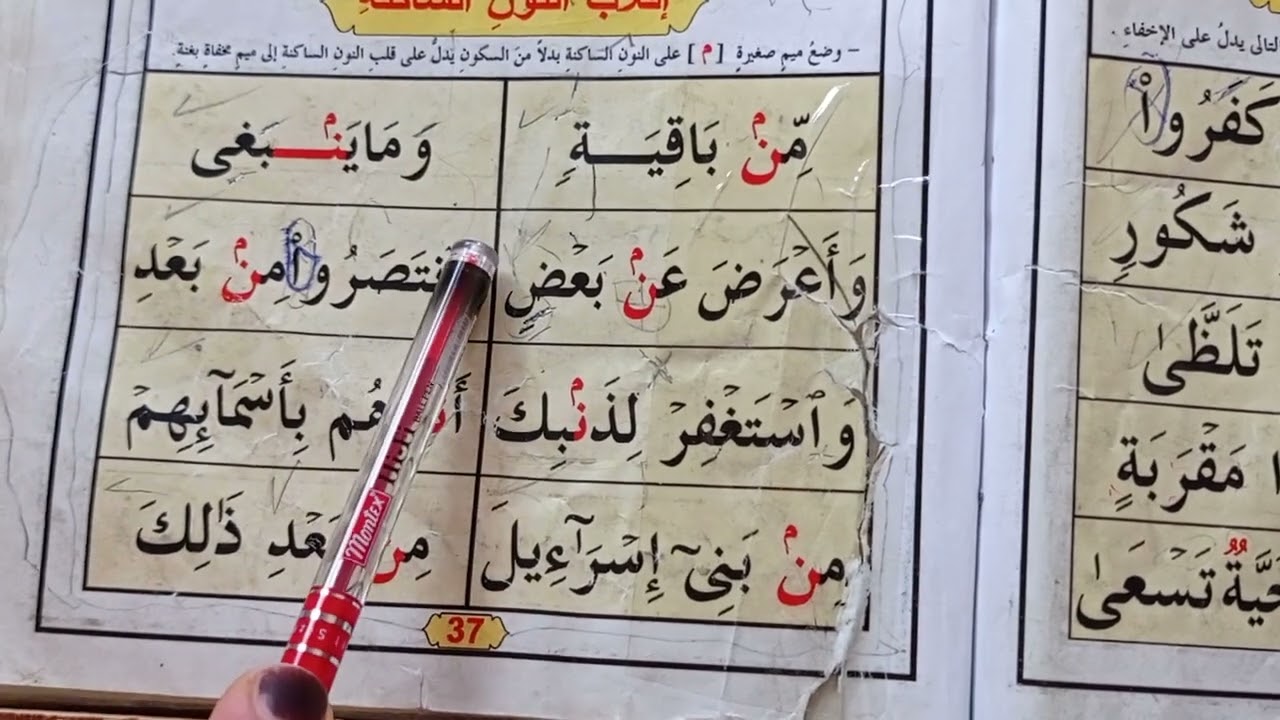 إقلاب النون الساكنة
– وضعُ ميمٍ صغيرةٍ [ م ] على النونِ الساكنةِ بدلاً منَ السكونِ يَدلُّ على قلبِ النونِ الساكنةِ إلى ميمٍ مخفاةٍ بغنةٍ.
مِّنۢ بَاقِيَـــةٍ
وَمَايَنۢـــبَغى
وَأَعۡرَضَ عَنۢ بَعۡضٍ
نتَصَرُواْ مِنۢ بَعۡدِ
وَٱسۡتَغۡفِرۡ لِذَنۢبِكَ
هُم بِأَسۡمَآئِهِمۡ
مِنۢ بَنِىٓ إِسۡرَٰٓءِيلَ
مِنۢ بَعۡدِ ذَٰلِكَ
37
التالى يدلُ على الإخفاءِ .
كَفَرُواْ
شَكُورٍ
تَلَظَّىٰ
مَقۡرَبَةٍ
حَيَّةٌ تَسۡعَىٰ
Montex
HIGH